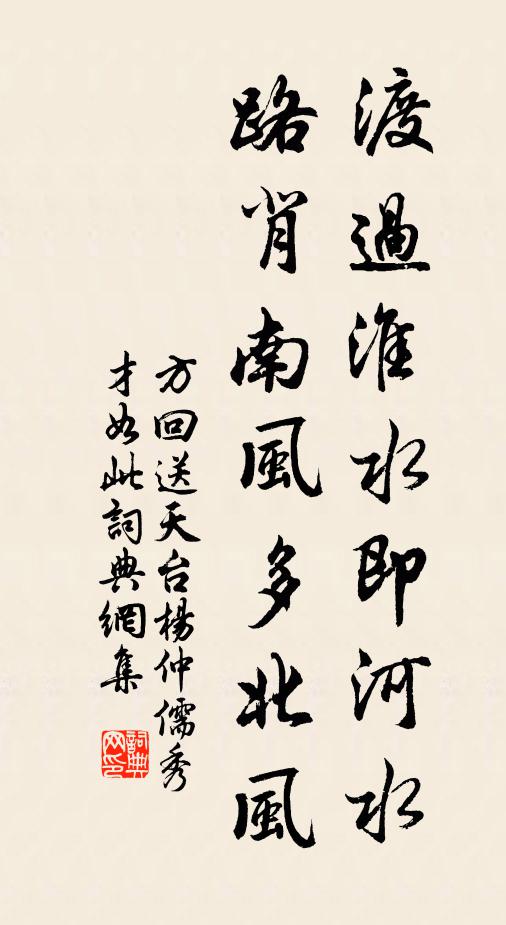 渡過淮水即河水
路背南風多北風
方回送天台楊仲儒秀
才如此詞典網集
詞典
网印